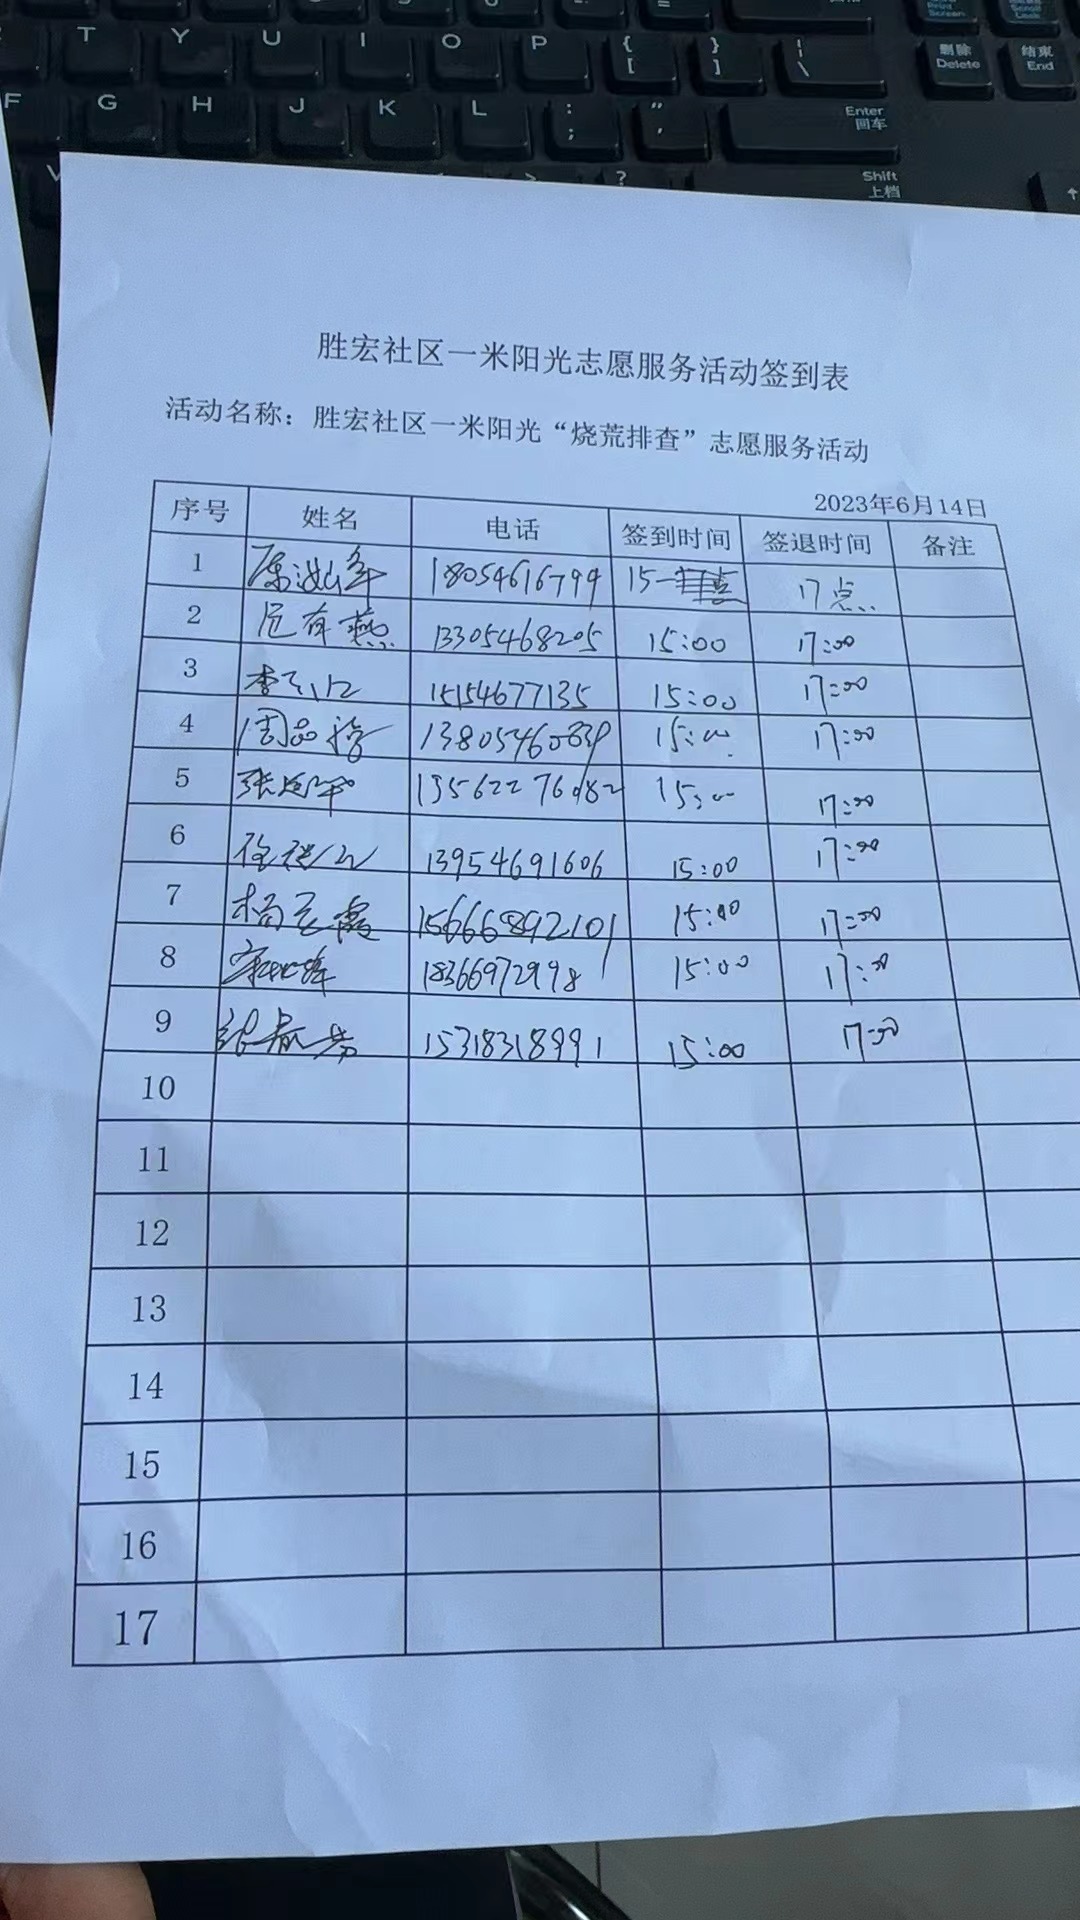 T Y U I O P { [ } ] | \ 删除 Delete 结束 End
Print Screen Scroll Lock
F G H J K L : ; " ' Enter 回车
V > ? Shift 上档
胜宏社区一米阳光志愿服务活动签到表
活动名称：胜宏社区一米阳光“烧荒排查”志愿服务活动
2023年6月14日
序号 姓名 电话 签到时间 签退时间 备注
1 18054616799 15 17点
2 13305468205 15:00 17:00
3 15154677135 15:00 17:00
4 周品 15:00 17:00
5 张 15:00 17:00
6 徐 13954691606 15:00 17:00
7 杨 霞 15666892101 15:00 17:00
8 18366972998 15:00 17:00
9 张 芳 15318318991 15:00 17:00
10
11
12
13
14
15
16
17